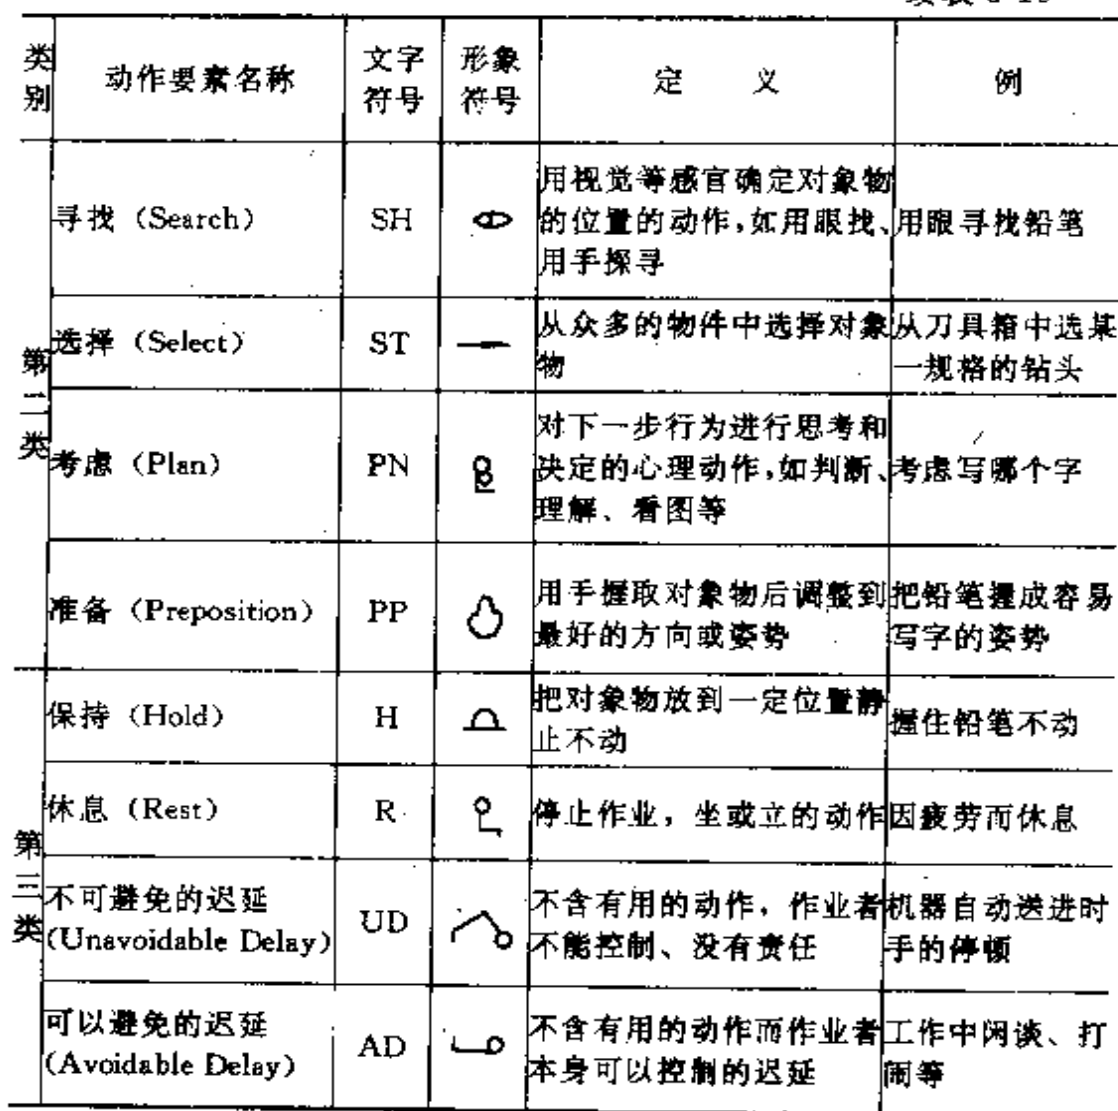 类别 动作要素名称 文字符号 形象符号 定 义 例
第二类
寻找（Search） SH 用视觉等感官确定对象物
的位置的动作，如用眼找、
用手探寻 用眼寻找铅笔
选择（Select） ST 从众多的物件中选择对象
物 从刀具箱中选某
一规格的钻头
考虑（Plan） PN 对下一步行为进行思考和
决定的心理动作，如判断、
理解、看图等 考虑写哪个字
准备（Preposition） PP 用手握取对象物后调整到
最好的方向或姿势 把铅笔握成容易
写字的姿势
第三类
保持（Hold） H 把对象物放到一定位置静
止不动 握住铅笔不动
休息（Rest） R 停止作业，坐或立的动作 因疲劳而休息
不可避免的迟延
(Unavoidable Delay) UD 不含有用的动作，作业者
不能控制、没有责任 机器自动送进时
手的停顿
可以避免的迟延
(Avoidable Delay) AD 不含有用的动作而作业者
本身可以控制的迟延 工作中闲谈、打
闹等